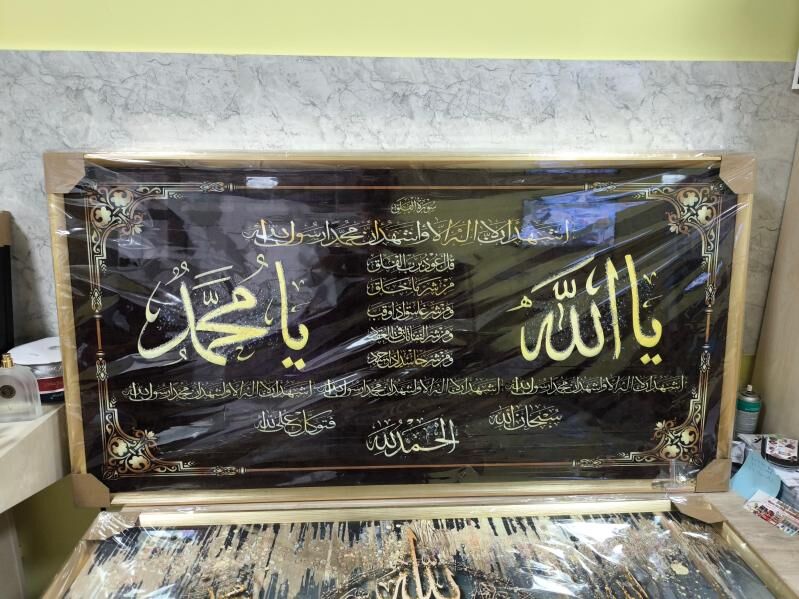 سورة الفلق
اشهد ان لا اله الا الله و اشهد ان محمد ا رسول الله
يا الله
يا محمد
قل اعوذ برب الفلق
من شر ما خلق
ومن شر غاسق اذا وقب
ومن شر النفاثات في العقد
ومن شر حاسد اذا حسد
اشهد ان لا اله الا الله و اشهد ان محمد ا رسول الله اشهد ان لا اله الا الله و اشهد ان محمد ا رسول الله اشهد ان لا اله الا الله و اشهد ان محمد ا رسول الله
سبحان الله
الحمد لله
فتوكل على الله
الله